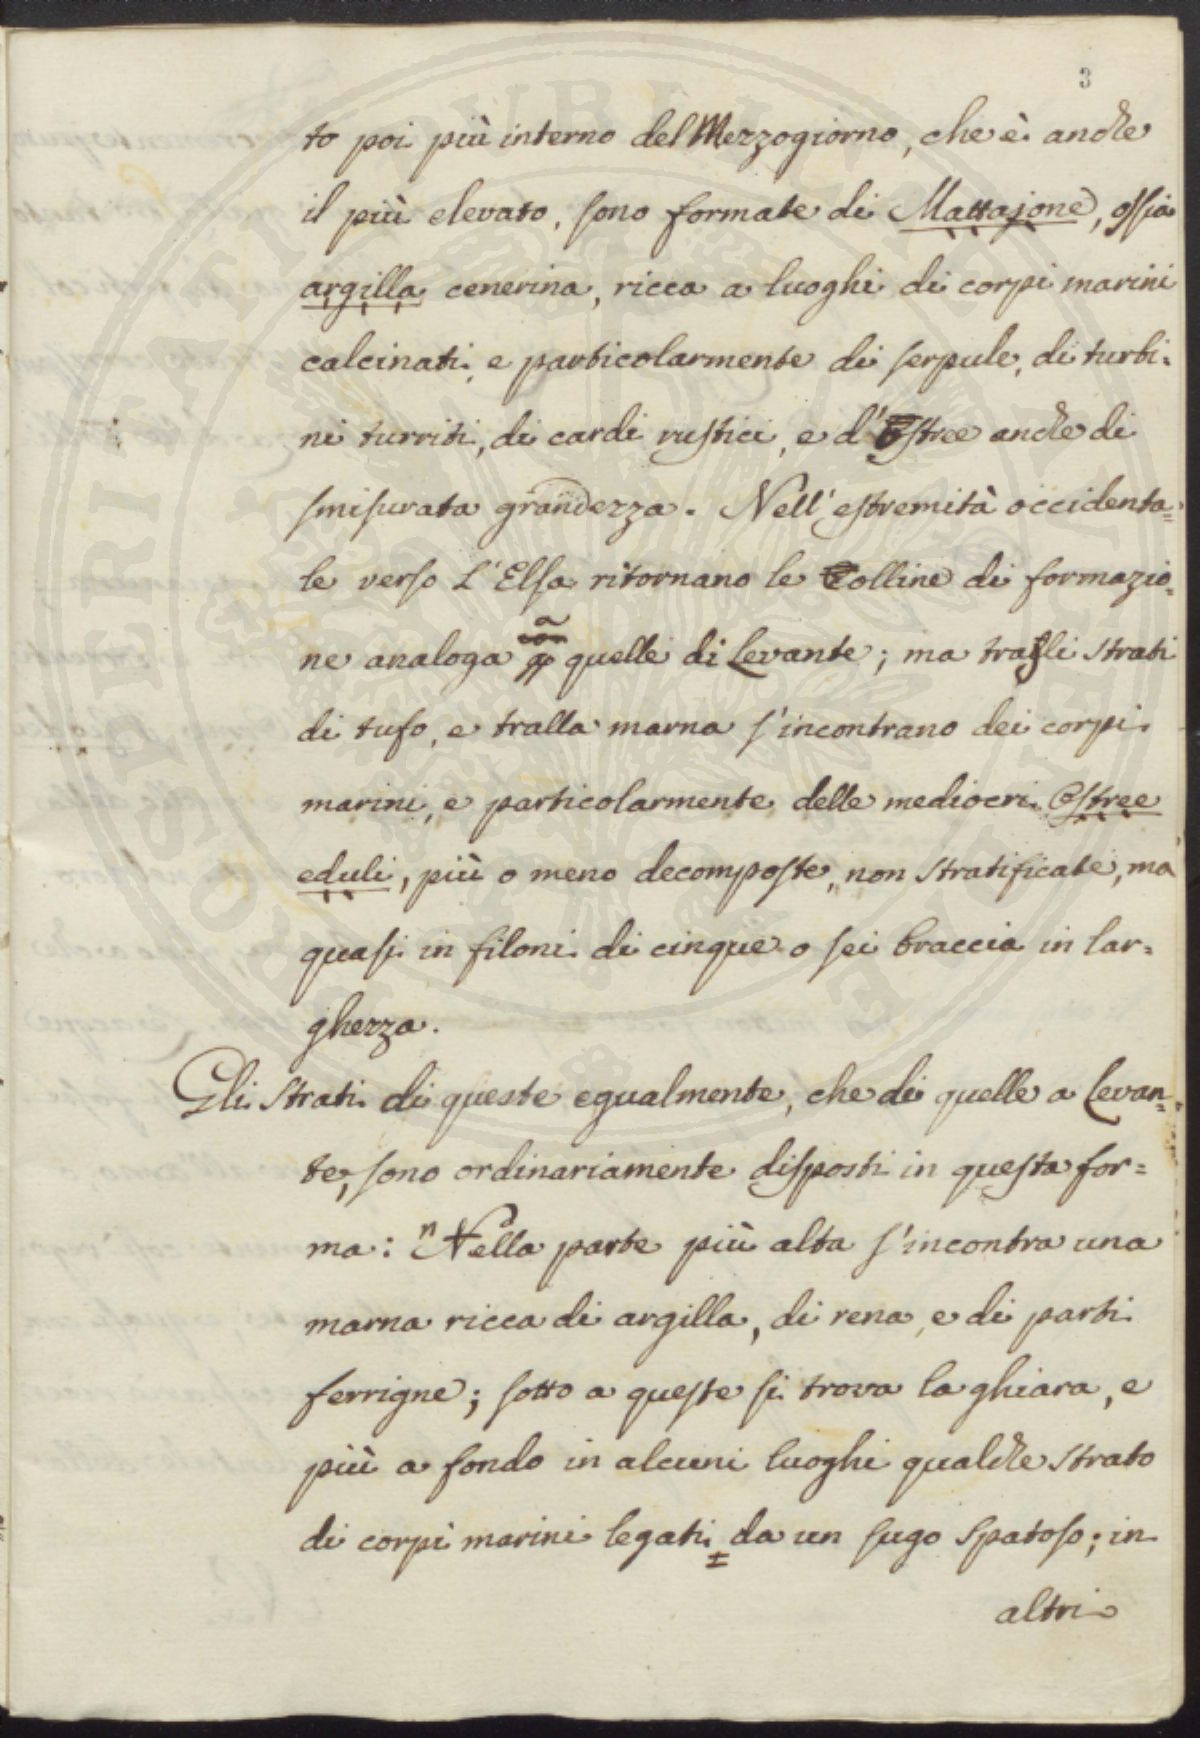 3
to poi più interno del Mezzogiorno, che è anche
il più elevato, sono formate di Mattajone, ossia
argilla cenerina, ricca a luoghi di corpi marini
calcinati, e particolarmente di serpule, di turbi=
ni turriti, di cardi rustici, e d'Ostree anche di
smisurata grandezza. Nell'estremità occidenta=
le verso L'Elsa ritornano le Colline di formazio=
ne analoga a quelle di Levante; ma tralli strati
di tufo, e tralla marna s'incontrano dei corpi
marini, e particolarmente delle mediocri Ostree
eduli, più o meno decomposte, non stratificate, ma
quasi in filoni di cinque o sei braccia in lar=
ghezza.
Gli strati di queste egualmente, che di quelle a Levan=
te, sono ordinariamente disposti in questa for=
ma: Nella parte più alta s'incontra una
marna ricca di argilla, di rena, e di parti
ferrigne; sotto a queste si trova la ghiara, e
più a fondo in alcuni luoghi qualche strato
di corpi marini legati da un sugo spatoso; in
altri